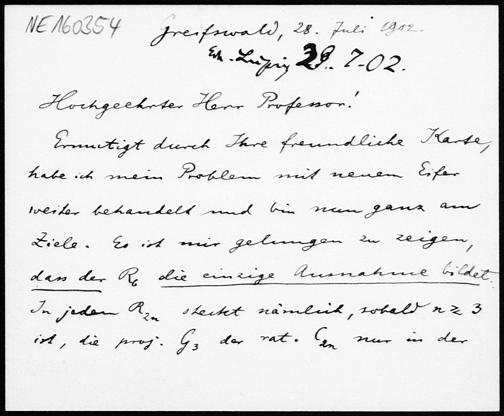 NE 160354
Greifswald, 28. Juli 1902.
Erh. Leipzig 29. 7-02.
Hochgeehrter Herr Professor!
Ermutigt durch Ihre freundliche Karte,
habe ich mein Problem mit neuem Eifer
weiter behandelt und bin nun ganz am
Ziele. Es ist mir gelungen zu zeigen,
dass der R₆ die einzige Ausnahme bildet.
In jedem R₂ₙ steckt nämlich, sobald n ≥ 3
ist, die proj. G₃ der rat. C₂ₙ nur in der